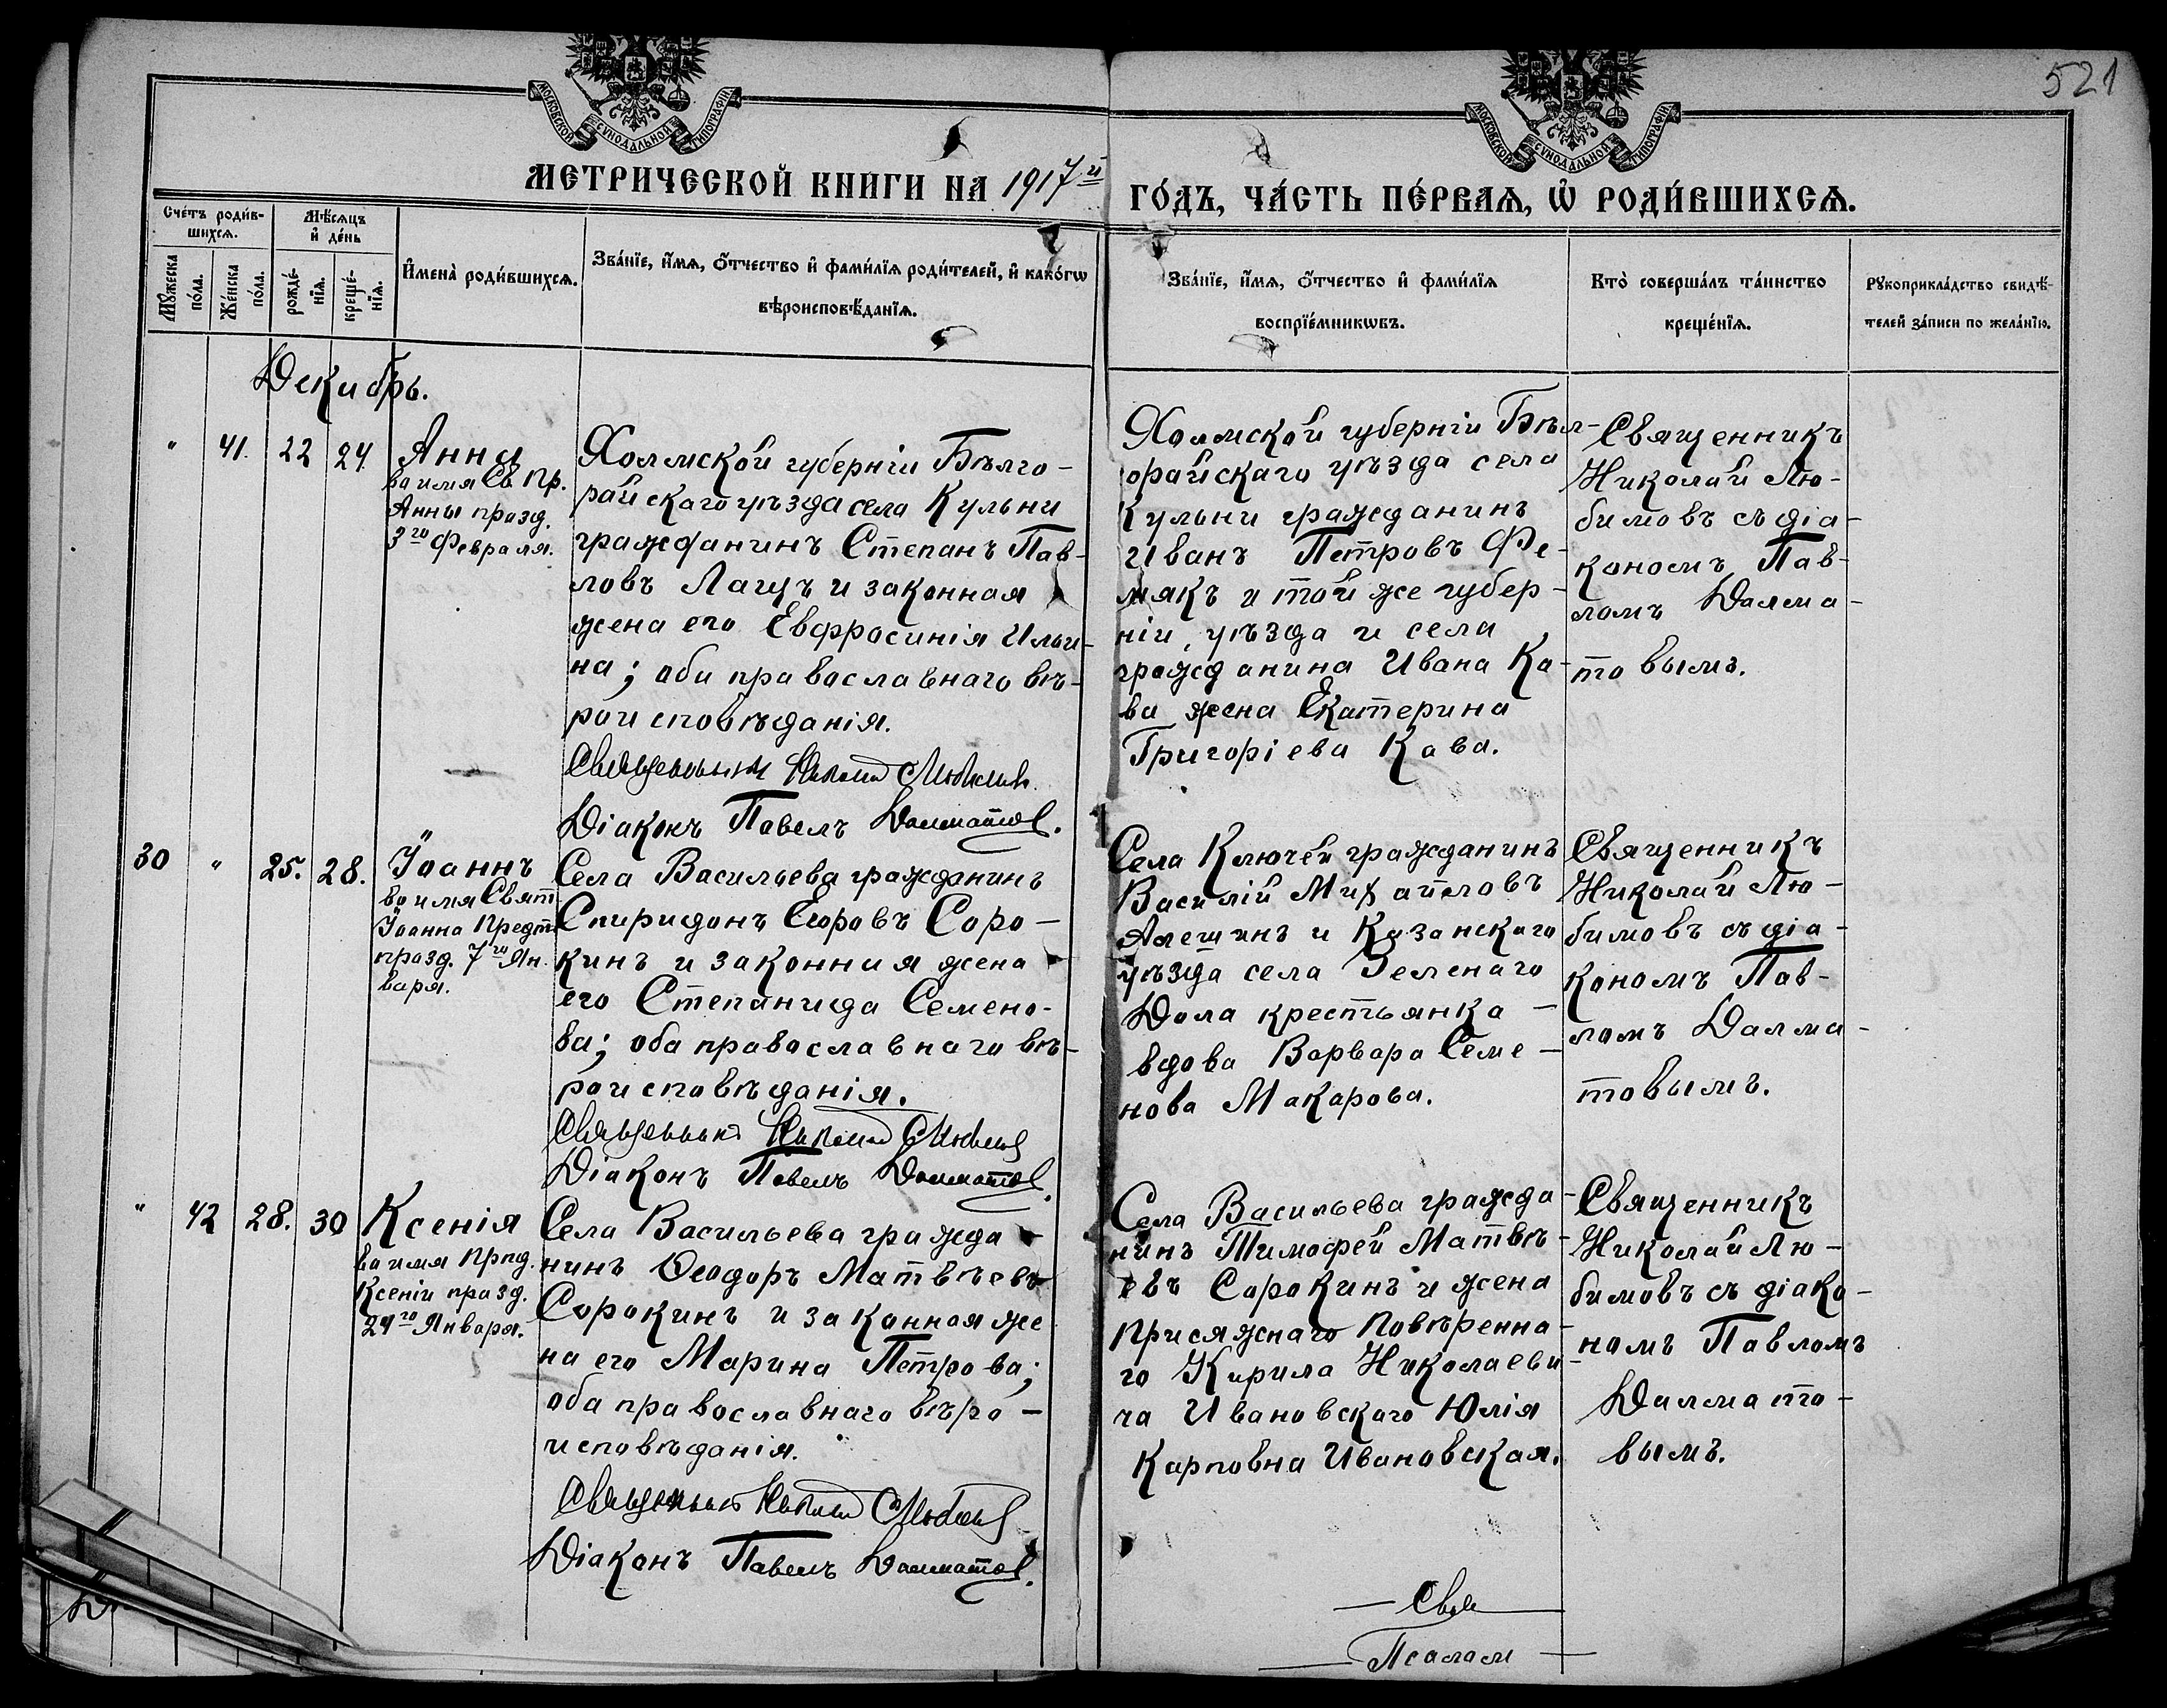 521
МОСКОВСКОЙ СѴНОДАЛЬНОЙ ТИПОГРАФІИ
МОСКОВСКОЙ СѴНОДАЛЬНОЙ ТИПОГРАФІИ
МЕТРИЧЕСКОЙ КНИГИ НА 1917й ГО́ДЪ, ЧА́СТЬ ПЕ́РВАѦ, Ѡ҆ РОДИ́ВШИХСѦ.
Сче́тъ роди́в-
шихсѧ.
Мѣ́сѧцъ
и҆ де́нь
Мꙋ́жеска
по́ла.
Же́нска
по́ла.
рожде́-
нїѧ.
креще́-
нїѧ.
И҆мена̀ роди́вшихсѧ.
Зва́нїе, и҆́мѧ, ѻ҆́тчество и҆ фами́лїѧ роди́телей, и҆ како́гѡ
вѣроисповѣ́данїѧ.
Зва́нїе, и҆́мѧ, ѻ҆́тчество и҆ фами́лїѧ
воспрїе́мникѡвъ.
Кто̀ соверша́лъ та́инство
креще́нїѧ.
Рꙋкоприкла́дство свидѣ́-
телей за́писи по жела́нїю.
Декабрь.
" 41. 22 24.
Анна
во имя Св. Пр.
Анны празд.
3го Февраля.
Холмской губерніи Бѣлго-
райскаго уѣзда села Кульни
гражданинъ Степанъ Пав-
ловъ Лащъ и законная
жена его Евфросинія Ильи-
на; оба православнаго вѣ-
роисповѣданія.
Священникъ Николай Любимовъ
Діаконъ Павелъ Далматов.
Холмской губерніи Бѣл-
орайскаго уѣзда села
Кульни гражданинъ
Иванъ Петровъ Фе-
мякъ и той же губер-
ніи, уѣзда и села
гражданина Ивана Ка-
ва жена Екатерина
Григоріева Кава.
Священникъ
Николай Лю-
бимовъ съ діа-
кономъ Пав-
ломъ Далма-
товымъ.
30 " 25. 28.
Іоаннъ
во имя Свят.
Іоанна Предт.
празд. 7го Ян-
варя.
Села Васильева гражданинъ
Спиридонъ Егоровъ Соро-
кинъ и законная жена
его Степанида Семено-
ва; оба православнаго вѣ-
роисповѣданія.
Священникъ Николай Любимов
Діаконъ Павелъ Далматов.
Села Ключей гражданинъ
Василій Михайловъ
Алешинъ и Казанскаго
уѣзда села Зеленаго
Дола крестьянка -
вдова Варвара Семе-
нова Макарова.
Священникъ
Николай Лю-
бимовъ съ діа-
кономъ Пав-
ломъ Далма-
товымъ.
" 42 28. 30
Ксенія
во имя Прпд.
Ксеніи празд.
24го Января.
Села Васильева гражда-
нинъ Ѳеодоръ Матвѣевъ
Сорокинъ и законная же-
на его Марина Петрова;
оба православнаго вѣро-
исповѣданія.
Священникъ Николай Любимов
Діаконъ Павелъ Далматов.
Села Васильева гражда-
нинъ Тимофей Матвѣ-
евъ Сорокинъ и жена
Присяжнаго Повѣренна-
го Кирила Николаеви-
ча Ивановскаго Юлія
Карповна Ивановская.
Священникъ
Николай Лю-
бимовъ съ діако-
номъ Павломъ
Далмато-
вымъ.
Свя
Псалом